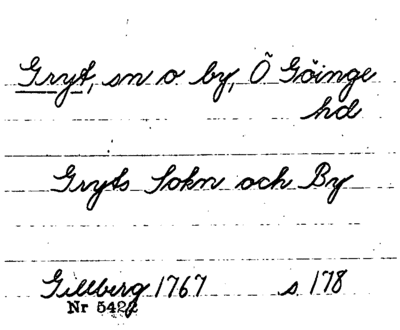 Gryt, sn o by, Ö Göinge
hd
Gryts Sokn och By
Gillberg 1767 s 178
Nr 5422